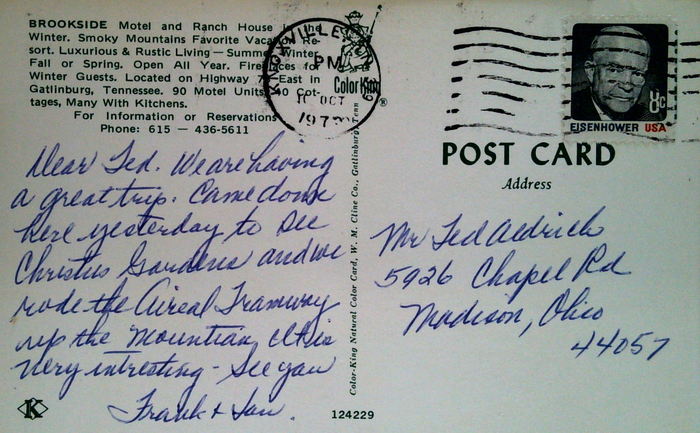 BROOKSIDE Motel and Ranch House in the
Winter. Smoky Mountains Favorite Vacation Re-
sort. Luxurious & Rustic Living — Summer, Winter,
Fall or Spring. Open All Year. Fireplaces for
Winter Guests. Located on Highway 73 East in
Gatlinburg, Tennessee. 90 Motel Units, 40 Cot-
tages, Many With Kitchens.
For Information or Reservations
Phone: 615 — 436-5611
Dear Ted. We are having
a great trip. Came down
here yesterday to see
Christus Gardens and we
rode the Aireal Tramway
up the Mountian, it is
very intresting - See you
Frank +
K
124229
Color-King Natural Color Card, W. M. Cline Co., Gatlinburg, Tenn
Color King
®
KNOXVILLE, TEN
PM
OCT
197
8c
EISENHOWER USA
POST CARD
Address
Mr Ted Aldrich
5926 Chapel Rd
Madison, Ohio
44057